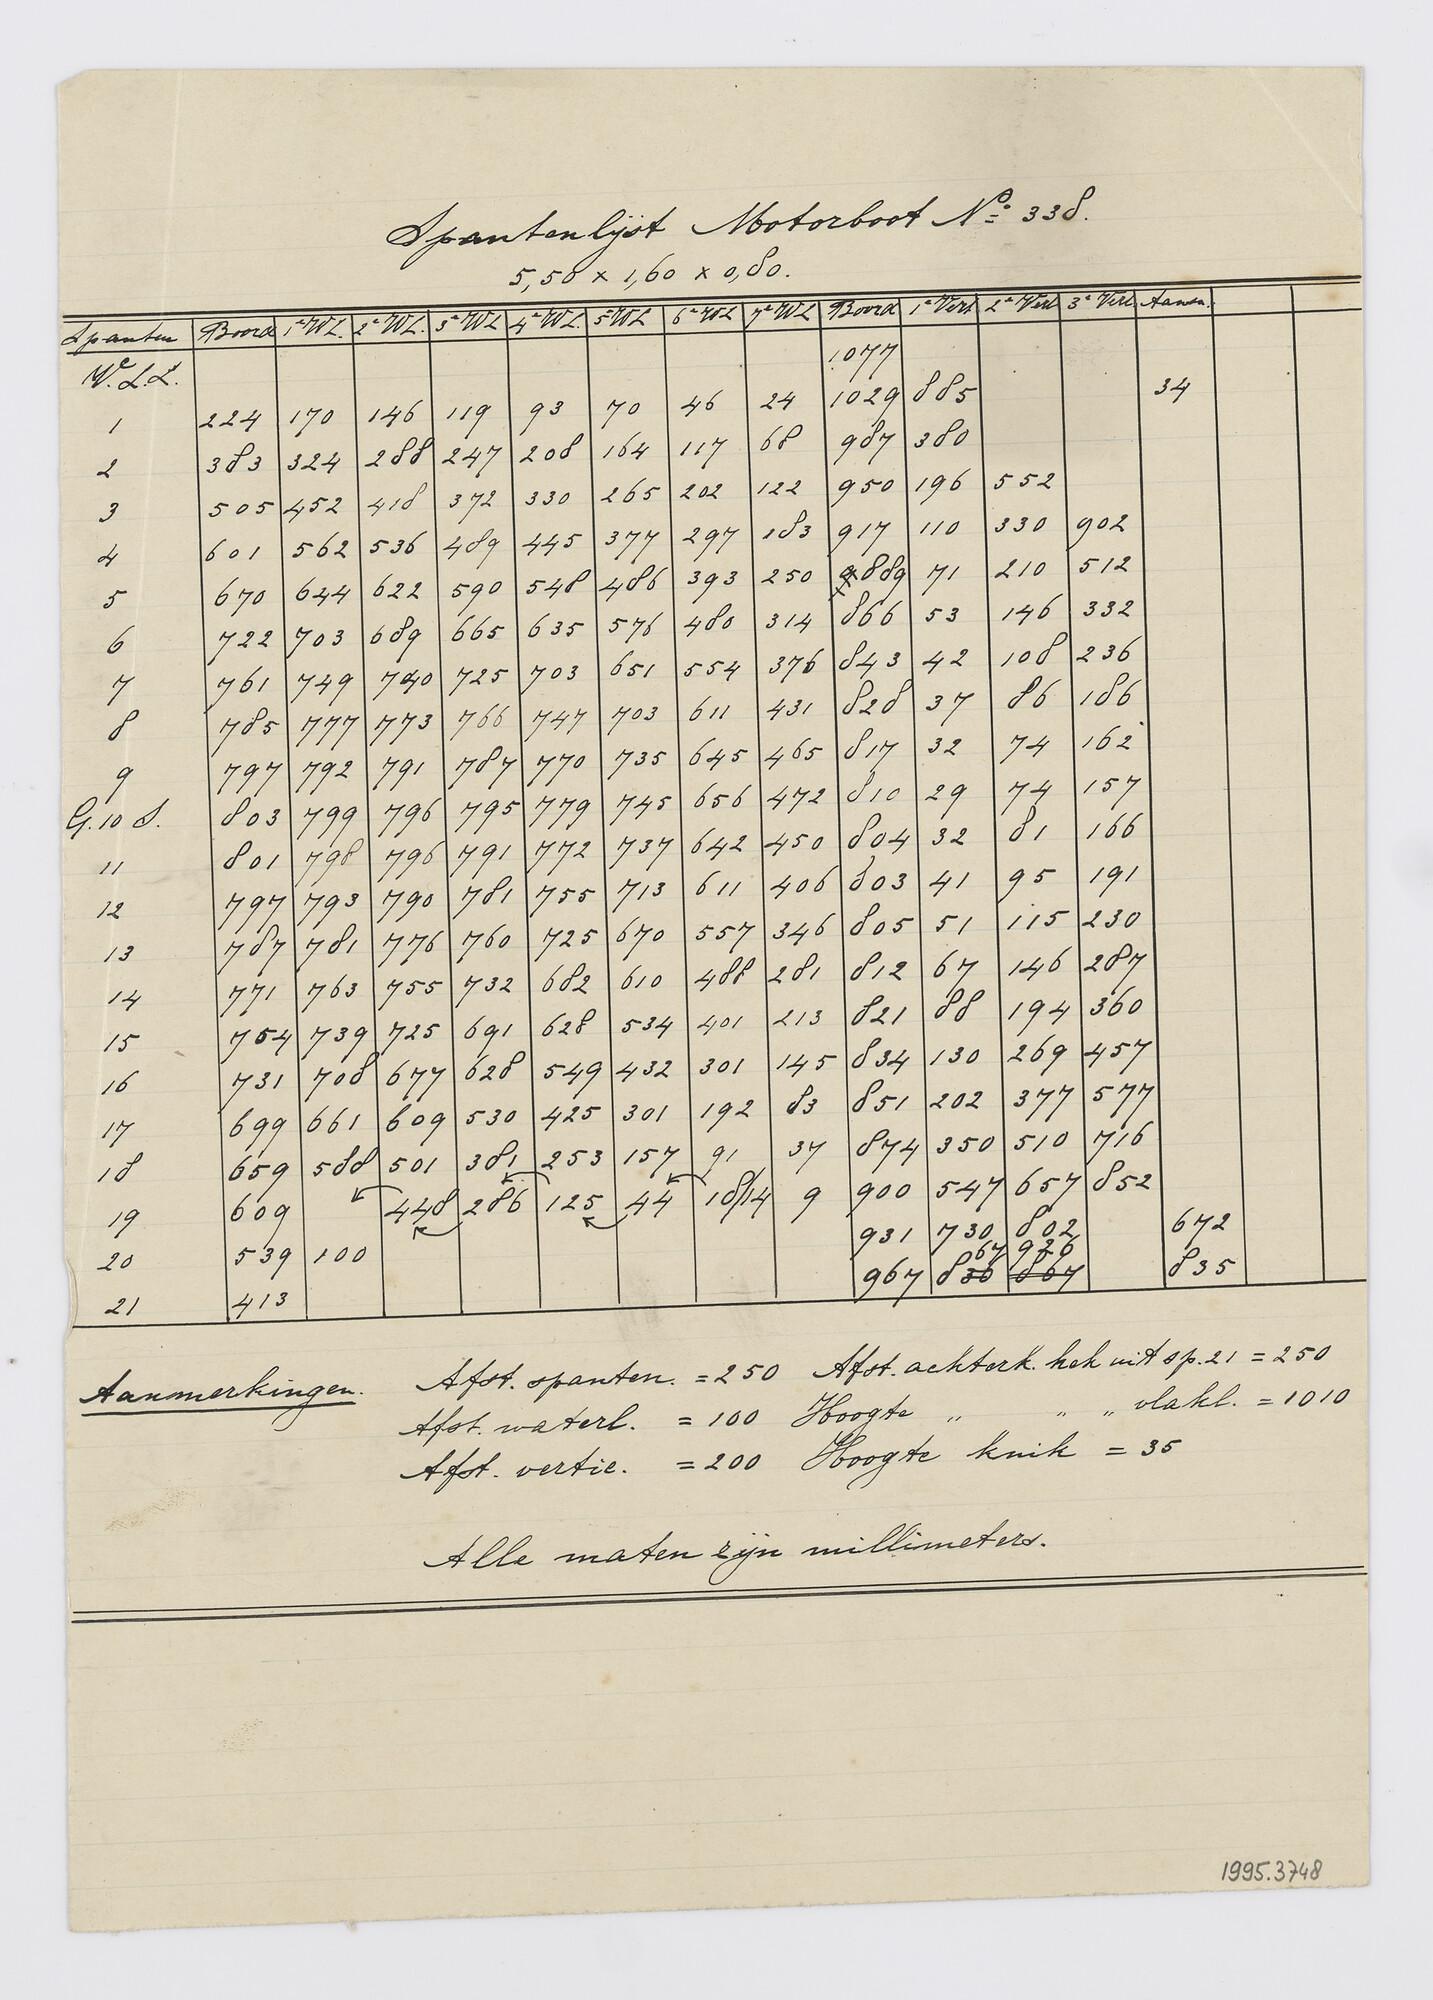 Spantenlijst Motorboot No. 338.
5,50 x 1,60 x 0,80.
Spanten Boord 1e WL. 2e WL. 3e WL 4e WL. 5e WL 6e WL 7e WL Boord 1e Vert 2e Vert 3e Vert. Aanm.
W.L.L. 1077
1 224 170 146 119 93 70 46 24 1029 885 34
2 383 324 288 247 208 164 117 68 987 380
3 505 452 418 372 330 265 202 122 950 196 552
4 601 562 536 489 445 377 297 183 917 110 330 902
5 670 644 622 590 548 486 393 250 889 71 210 512
6 722 703 689 665 635 576 480 314 866 53 146 332
7 761 749 740 725 703 651 554 376 843 42 108 236
8 785 777 773 766 747 703 611 431 828 37 86 186
9 797 792 791 787 770 735 645 465 817 32 74 162
G. 10 S. 803 799 796 795 779 745 656 472 810 29 74 157
11 801 798 796 791 772 737 642 450 804 32 81 166
12 797 793 790 781 755 713 611 406 803 41 95 191
13 787 781 776 760 725 670 557 346 805 51 115 230
14 771 763 755 732 682 610 488 281 812 67 146 287
15 754 739 725 691 628 534 401 213 821 88 194 360
16 731 708 677 628 549 432 301 145 834 130 269 457
17 699 661 609 530 425 301 192 83 851 202 377 577
18 659 588 501 381 253 157 91 37 874 350 510 716
19 609 448 286 125 44 18/14 9 900 547 657 852
20 539 100 931 730 802 672
67 926
21 413 967 836 867 835
Aanmerkingen. Afst. spanten. = 250 Afst. achterk. hek uit sp. 21 = 250
Afst. waterl. = 100 Hoogte „ „ „ vlakl. = 1010
Afst. vertic. = 200 Hoogte knik = 35
Alle maten zijn millimeters.
1995.3748